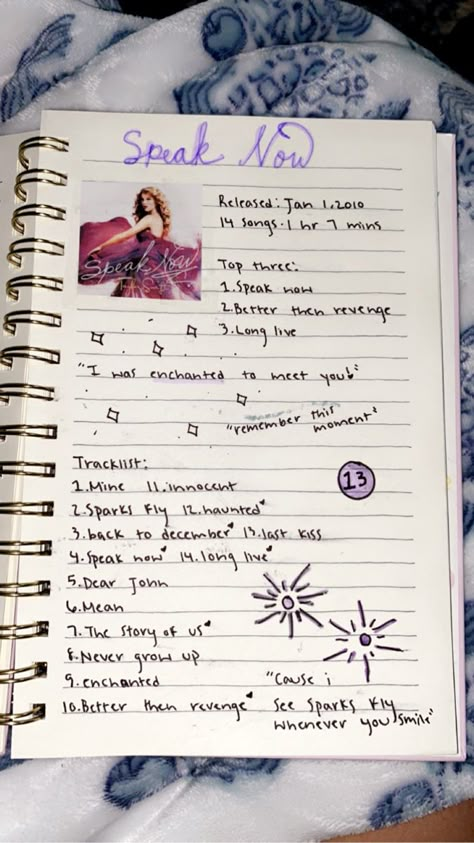 Speak Now
Released: Jan 1, 2010
14 songs · 1 hr 7 mins
Speak Now
Top three:
1. Speak now
2. Better then revenge
3. Long live
"I was enchanted to meet you!"
"remember this
moment"
Tracklist:
1. Mine 11. innocent
13
2. Sparks Fly 12. haunted
3. back to december 13. last kiss
4. Speak now 14. long live
5. Dear John
6. Mean
7. The Story of us
8. Never grow up
9. enchanted
10. Better then revenge
"Cause i
See Sparks Fly
whenever you smile"